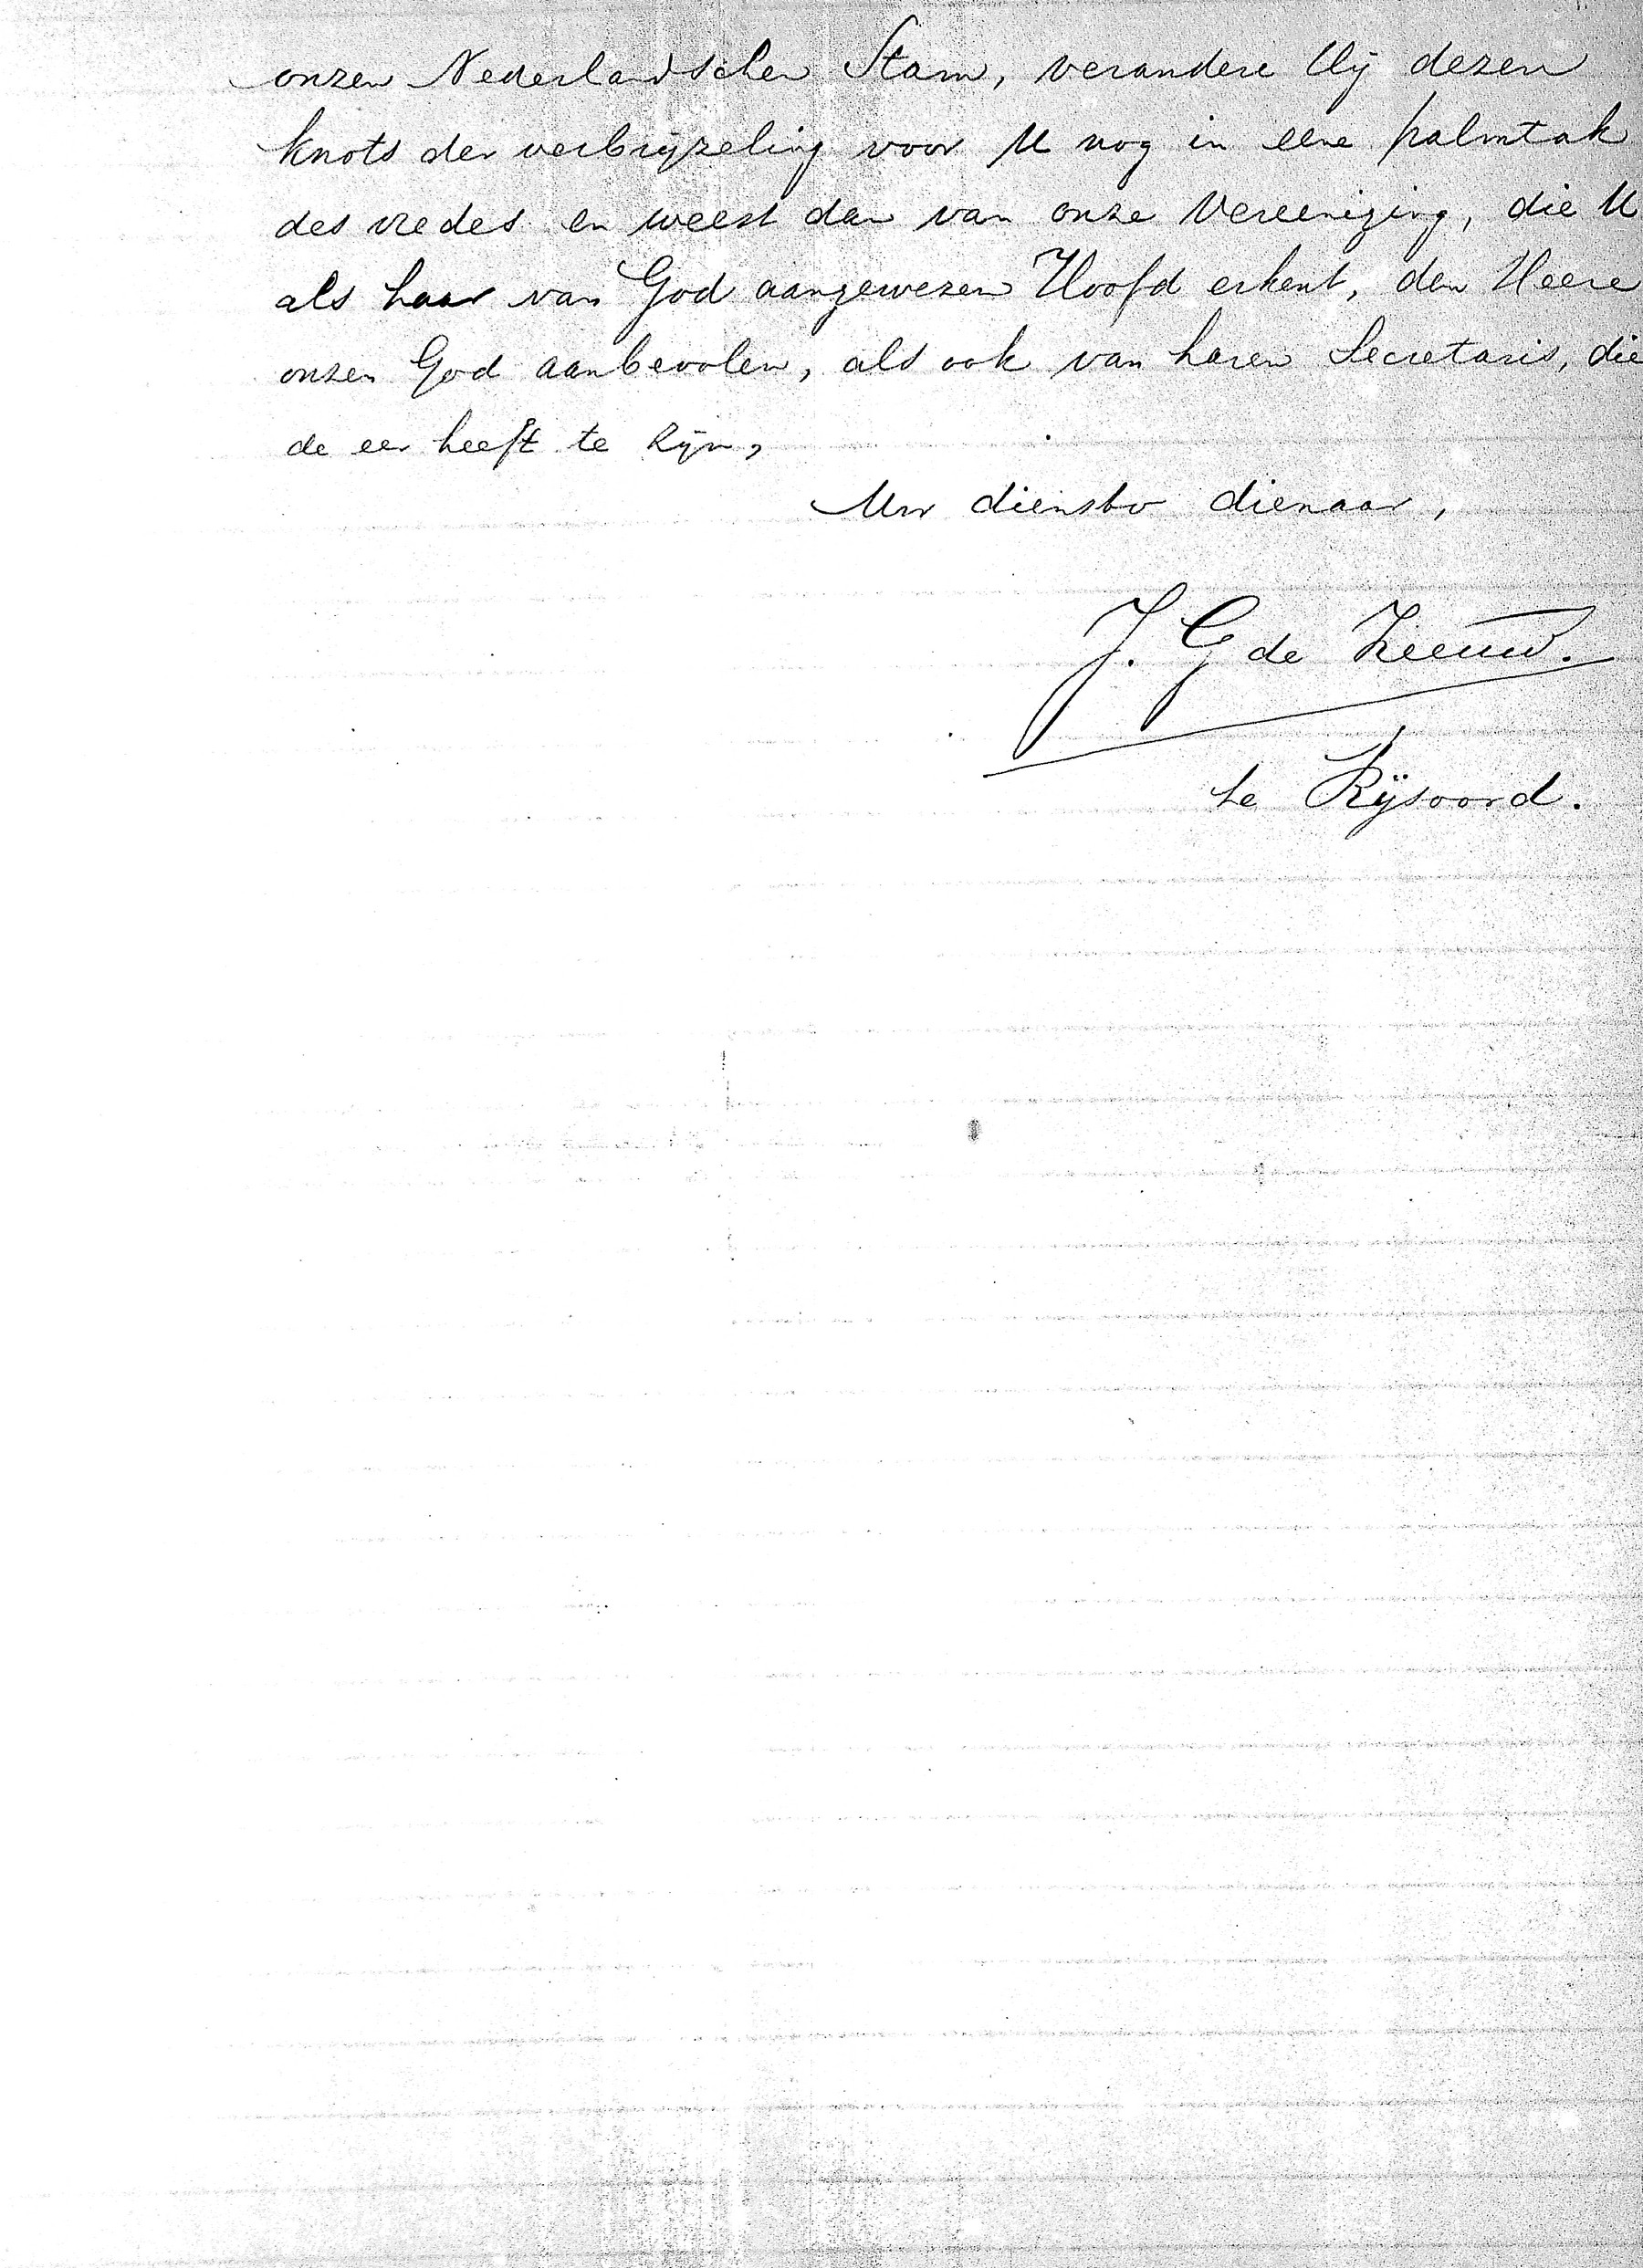 onzen Nederlandschen Stam, verandere Hij dezen
knots der verbrijzeling voor U nog in eene palmtak
des vredes en weest dan van onze Vereeniging, die U
als haar van God aangewezen Hoofd erkent, den Heere
onzen God aanbevolen, als ook van haren Secretaris, die
de eer heeft te zijn,
Uw dienstv dienaar,
J. G de Zeeuw.
te Rijsoord.